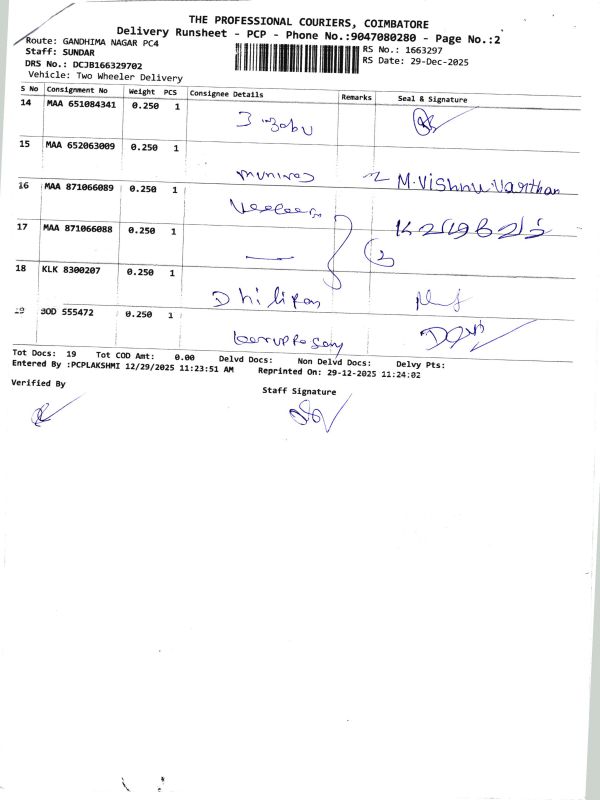 THE PROFESSIONAL COURIERS, COIMBATORE
Delivery Runsheet - PCP - Phone No.:9047080280 - Page No.:2
Route: GANDHIMA NAGAR PC4
RS No.: 1663297
Staff: SUNDAR
RS Date: 29-Dec-2025
DRS No.: DCJB166329702
Vehicle: Two Wheeler Delivery
S No Consignment No Weight PCS Consignee Details Remarks Seal & Signature
14 MAA 651084341 0.250 1
15 MAA 652063009 0.250 1
muniraj M.Vishnu Varthan
16 MAA 871066089 0.250 1
17 MAA 871066088 0.250 1
18 KLK 8300207 0.250 1
Dhilipan
19 BOD 555472 0.250 1
karuppasamy
Tot Docs: 19 Tot COD Amt: 0.00 Delvd Docs: Non Delvd Docs: Delvy Pts:
Entered By :PCPLAKSHMI 12/29/2025 11:23:51 AM Reprinted On: 29-12-2025 11:24:02
Verified By
Staff Signature